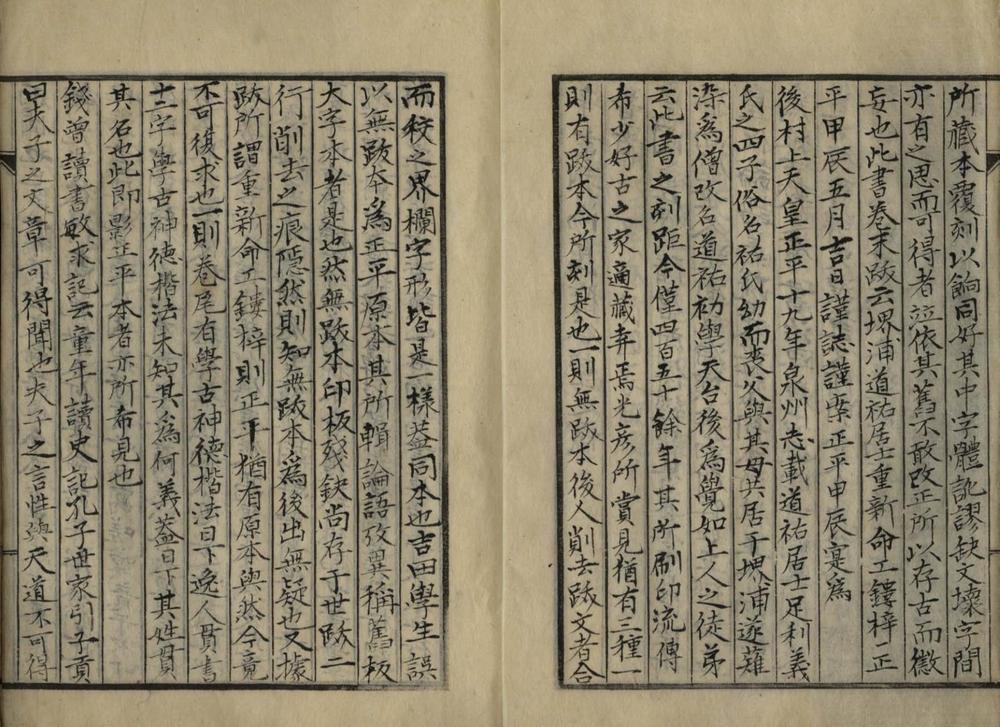 所藏本覆刻以餉同好其中字體訛謬缺文壞字間
亦有之思而可得者並依其舊不敢改正所以存古而徵
妄也此書卷末跋云堺浦道祐居士重新命工鏤梓正
平甲辰五月吉日謹誌謹案正平甲辰寔爲
後村上天皇正平十九年泉州志載道祐居士足利義
氏之四子俗名祐氏幼而喪父與其母共居于堺浦遂薙
染爲僧改名道祐初學天台後爲覺如上人之徒弟
云此書之刻距今僅四百五十餘年其所刷印流傳
希少好古之家適藏弆焉光彦所賞見猶有三種一
則有跋本今所刻是也一則無跋本後人削去跋文者合
而校之界欄字形皆是一樣蓋同本也吉田學生誤
以無跋本爲正平原本其所輯論語攷異稱舊板
大字本者是也然無跋本印板殘缺尚存于世跋二
行削去之痕隱然則知無跋本爲後出無疑也又據
跋所謂重新命工鏤梓則正平猶有原本與然今竟
不可復求也一則卷尾有學古神德楷法日下逸人貫書
十二字學古神德楷法未知其爲何義蓋日下其姓貫
其名也此即影正平本者亦所希見也
錢曾讀書敏求記云童年讀史記孔子世家引子貢
曰夫子之文章可得聞也夫子之言性與天道不可得